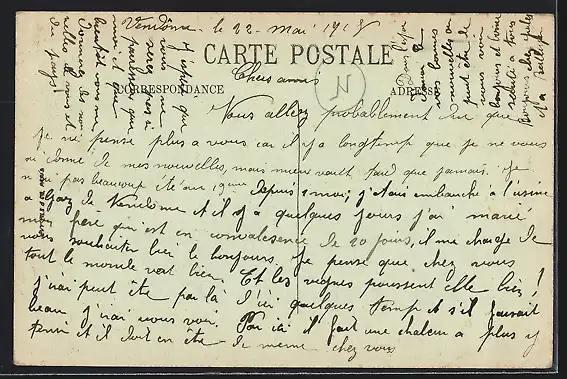 Vendôme le 22 mai 1918
CARTE POSTALE
CORRESPONDANCE
ADRESSE
Chers amis
Vous allez probablement dire que
je ne pense plus a vous car il y a longtemps que je ne vous
ai donné de mes nouvelles, mais mieux vaut tard que jamais. Je
n'ai pas beaucoup écrit Depuis 1 mois j'étais embauché a l'usine
a Gaz de Vendome et il y a quelques jours j'ai marié
mon frère qui est en convalescence de 20 jours, il me charge de
vous souhaiter bien le bonjour. Je pense que chez vous
tout le monde vat bien. Et les vignes poussent elle bien !
j'irai peut être par là d'ici quelques temps et s'il faisait
beau j'irai vous voir. Par ici il fait une chaleur a plus y
tenir et il doit en être de meme chez vous
J'espère que
vous ne
serez pas
paresseux que
moi et que
bientôt vous me
donnerez de vos
nouvelles et
du pays
Dans l'espoir
de
vos bonnes
nouvelles ou
peut être de
vous voir
bonjour
a tous
Bonjours chez Jules